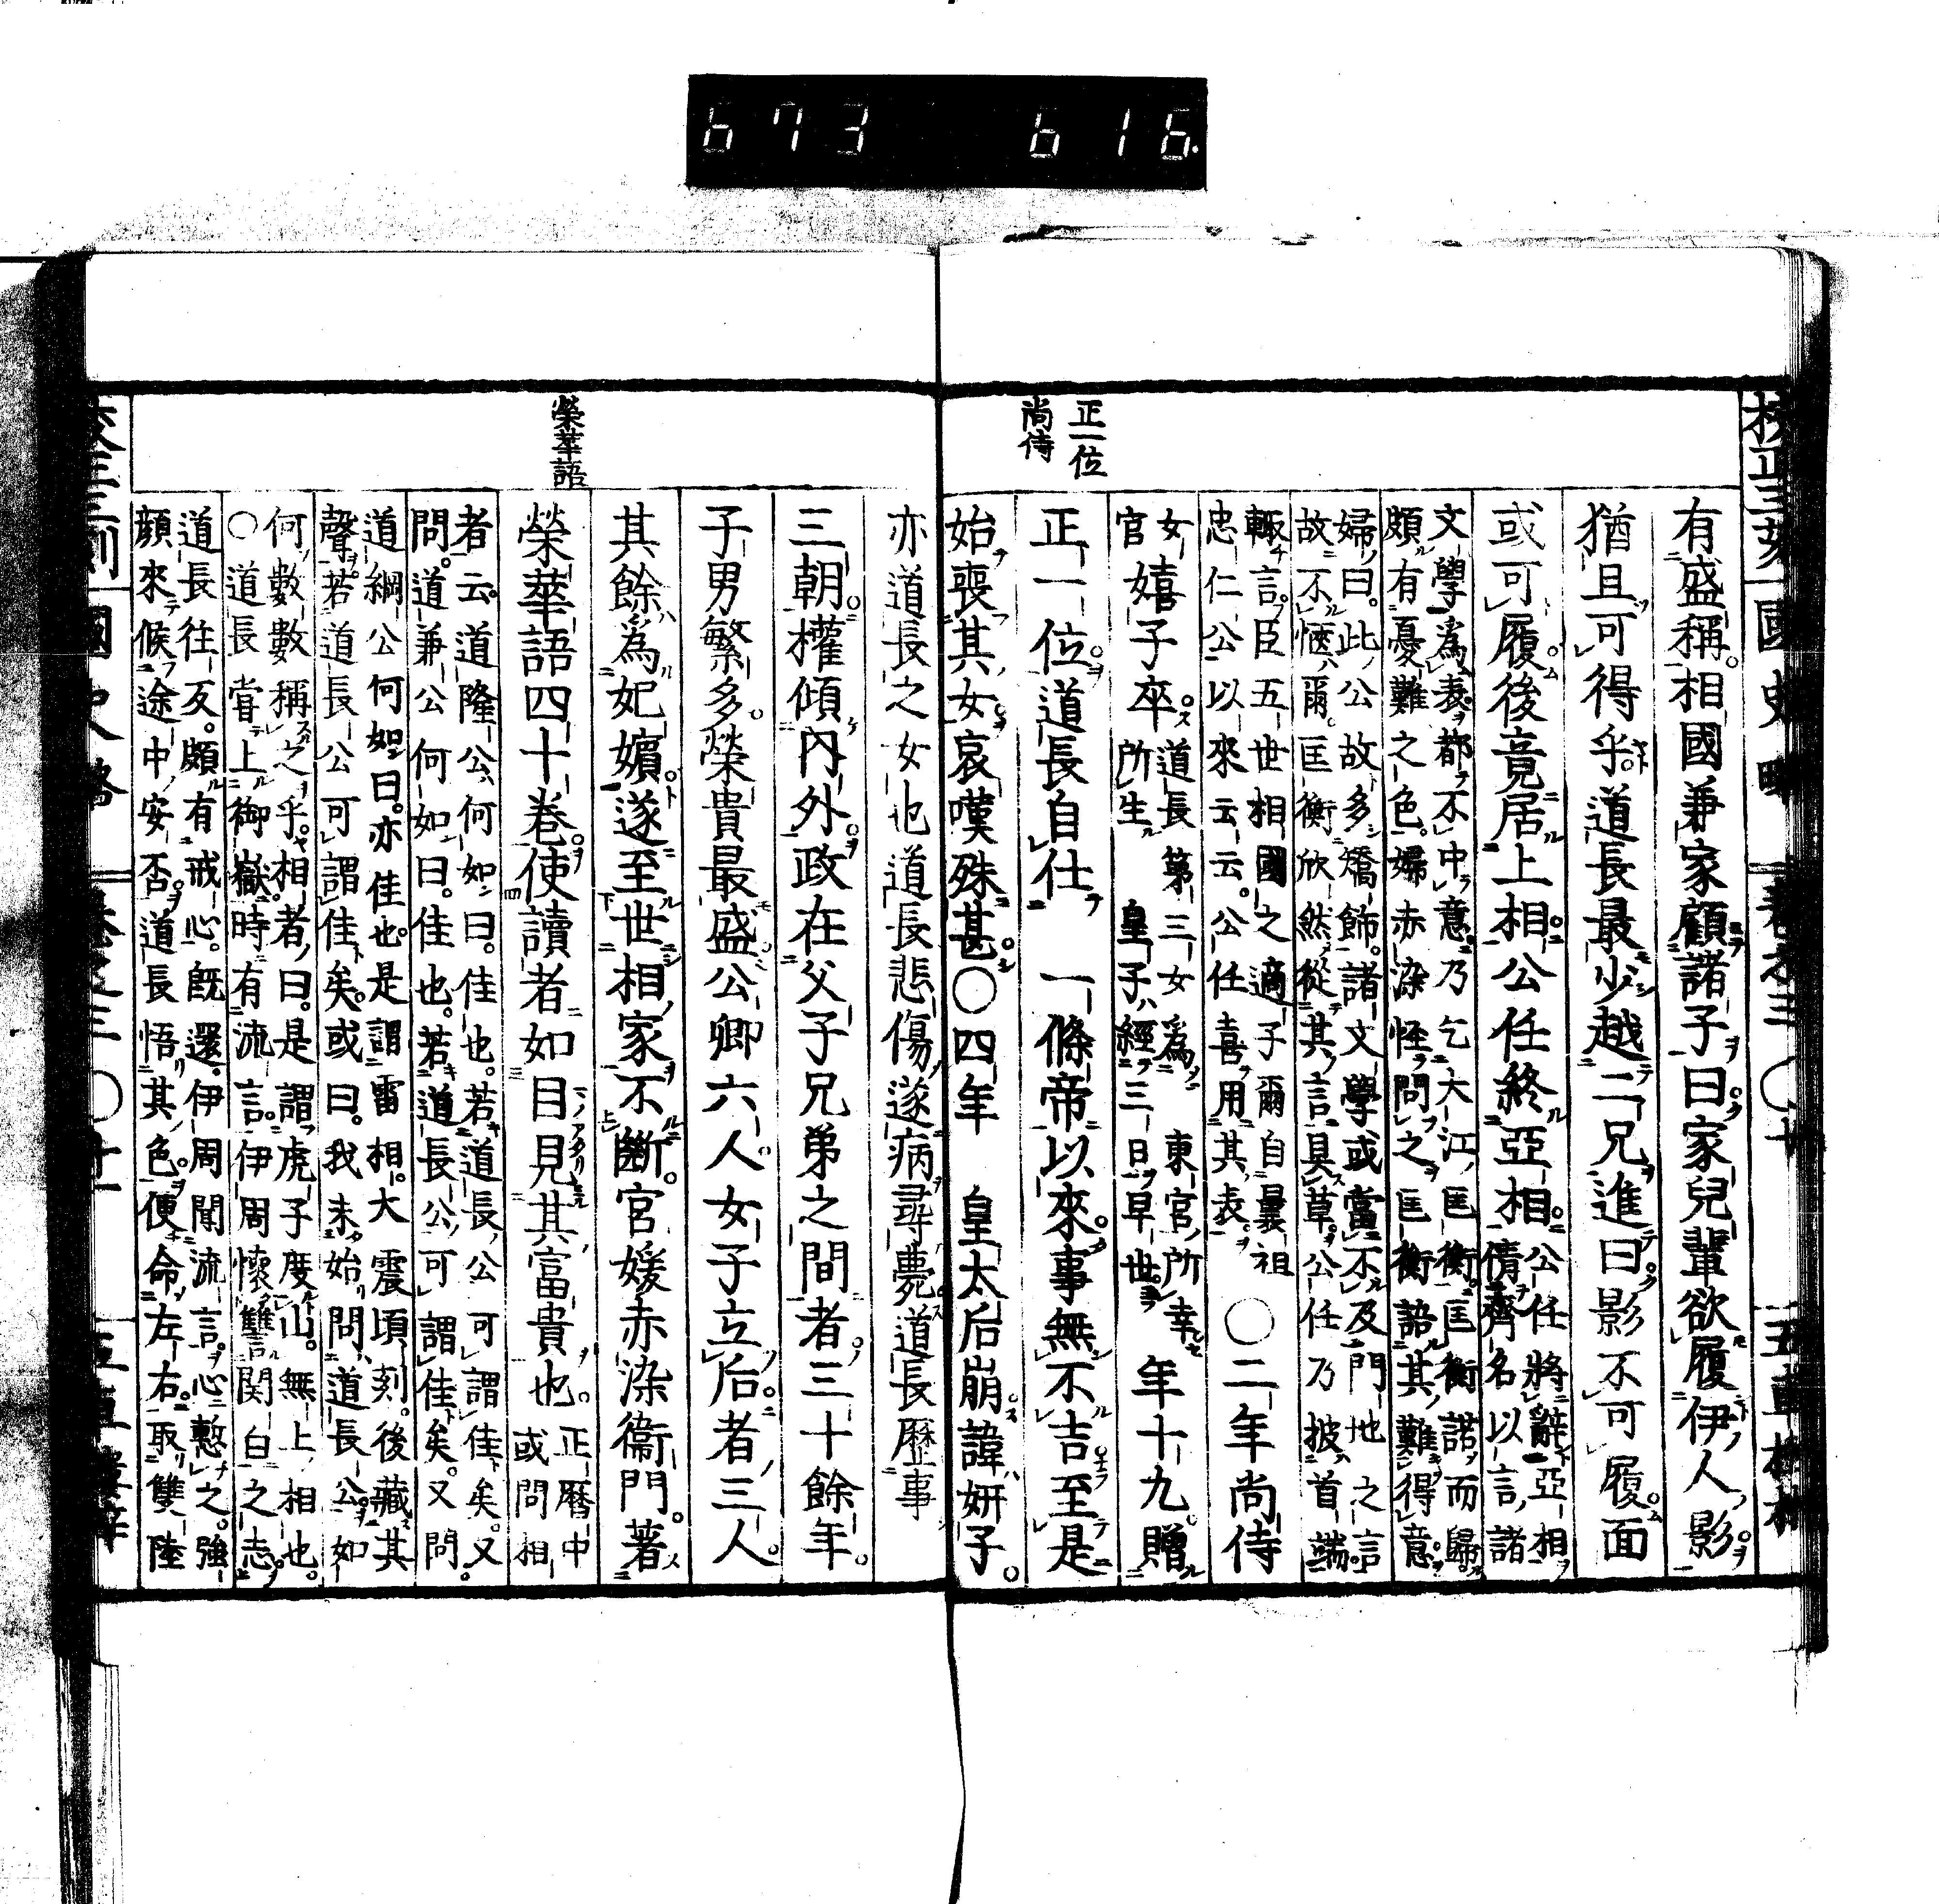 673 616
校正三刻 國史略 卷之三 〇廿 五車樓梓
正一位
尚侍
有盛稱。相國兼家顧諸子曰。家兒輩欲履伊人影。
猶且可得乎。道長最少。越二兄進曰。影不可履。面
或可履。後竟居上相。公任終亞相。
公任將辭亞相。
倩齊名以言。諸
文學爲表。都不中意。乃乞大江匡衡。匡衡諾而歸。
頗有憂難之色。婦赤染怪問之。匡衡語其難得意。
婦曰。此公故多矯飾。諸文學或當不及門地之言。
故不愜爾。匡衡欣然從其言具草。公任乃披首端。
輙言。臣五世相國之適子。爾自曩祖
忠仁公以來云云。公任喜用其表。
〇二年尚侍
女嬉子卒。
道長第三女爲東宮所幸。
官
所生皇子。經三日早世。
年十九。贈
正一位。道長自仕一條帝以來。事無不吉。至是
始喪其女。哀嘆殊甚。〇四年皇太后崩。諱妍子。
榮華語
亦道長之女也。道長悲傷。遂病尋薨。道長歷事
三朝。權傾內外。政在父子兄弟之間者。三十餘年。
子男繁多。榮貴最盛。公卿六人。女子立后者三人。
其餘爲妃嬪。遂至世相家不斷。宮媛赤染衞門。著
榮華語四十卷。使讀者如目見其富貴也。
正曆中
或問相
者云。道隆公何如。曰。佳也。若道長公可謂佳矣。又
問。道兼公何如。曰。佳也。若道長公可謂佳矣。又問。
道綱公何如。曰。亦佳也。是謂雷相。大震頃刻。後藏其
聲。若道長公可謂佳矣。或曰。我未始問道長公。如
何數數稱之乎。相者曰。是謂虎子度山。無上相也。
〇道長嘗上御嶽。時有流言。伊周懷讐関白之志。
道長往反。頗有戒心。旣還。伊周聞流言。心慙之。強
顏來候途中安否。道長悟其色。便命左右取雙陸